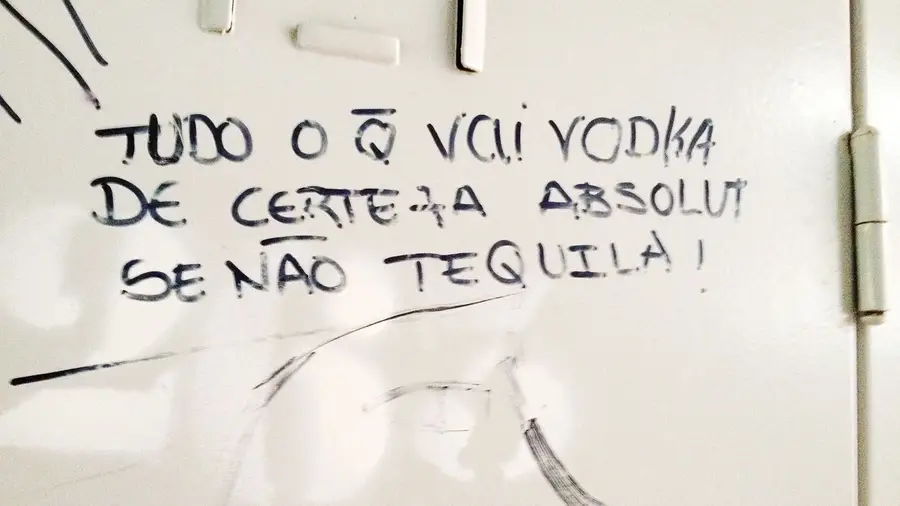 TUDO O Q̅ VAI VODKA
DE CERTEZA ABSOLUT
SE NÃO TEQUILA!